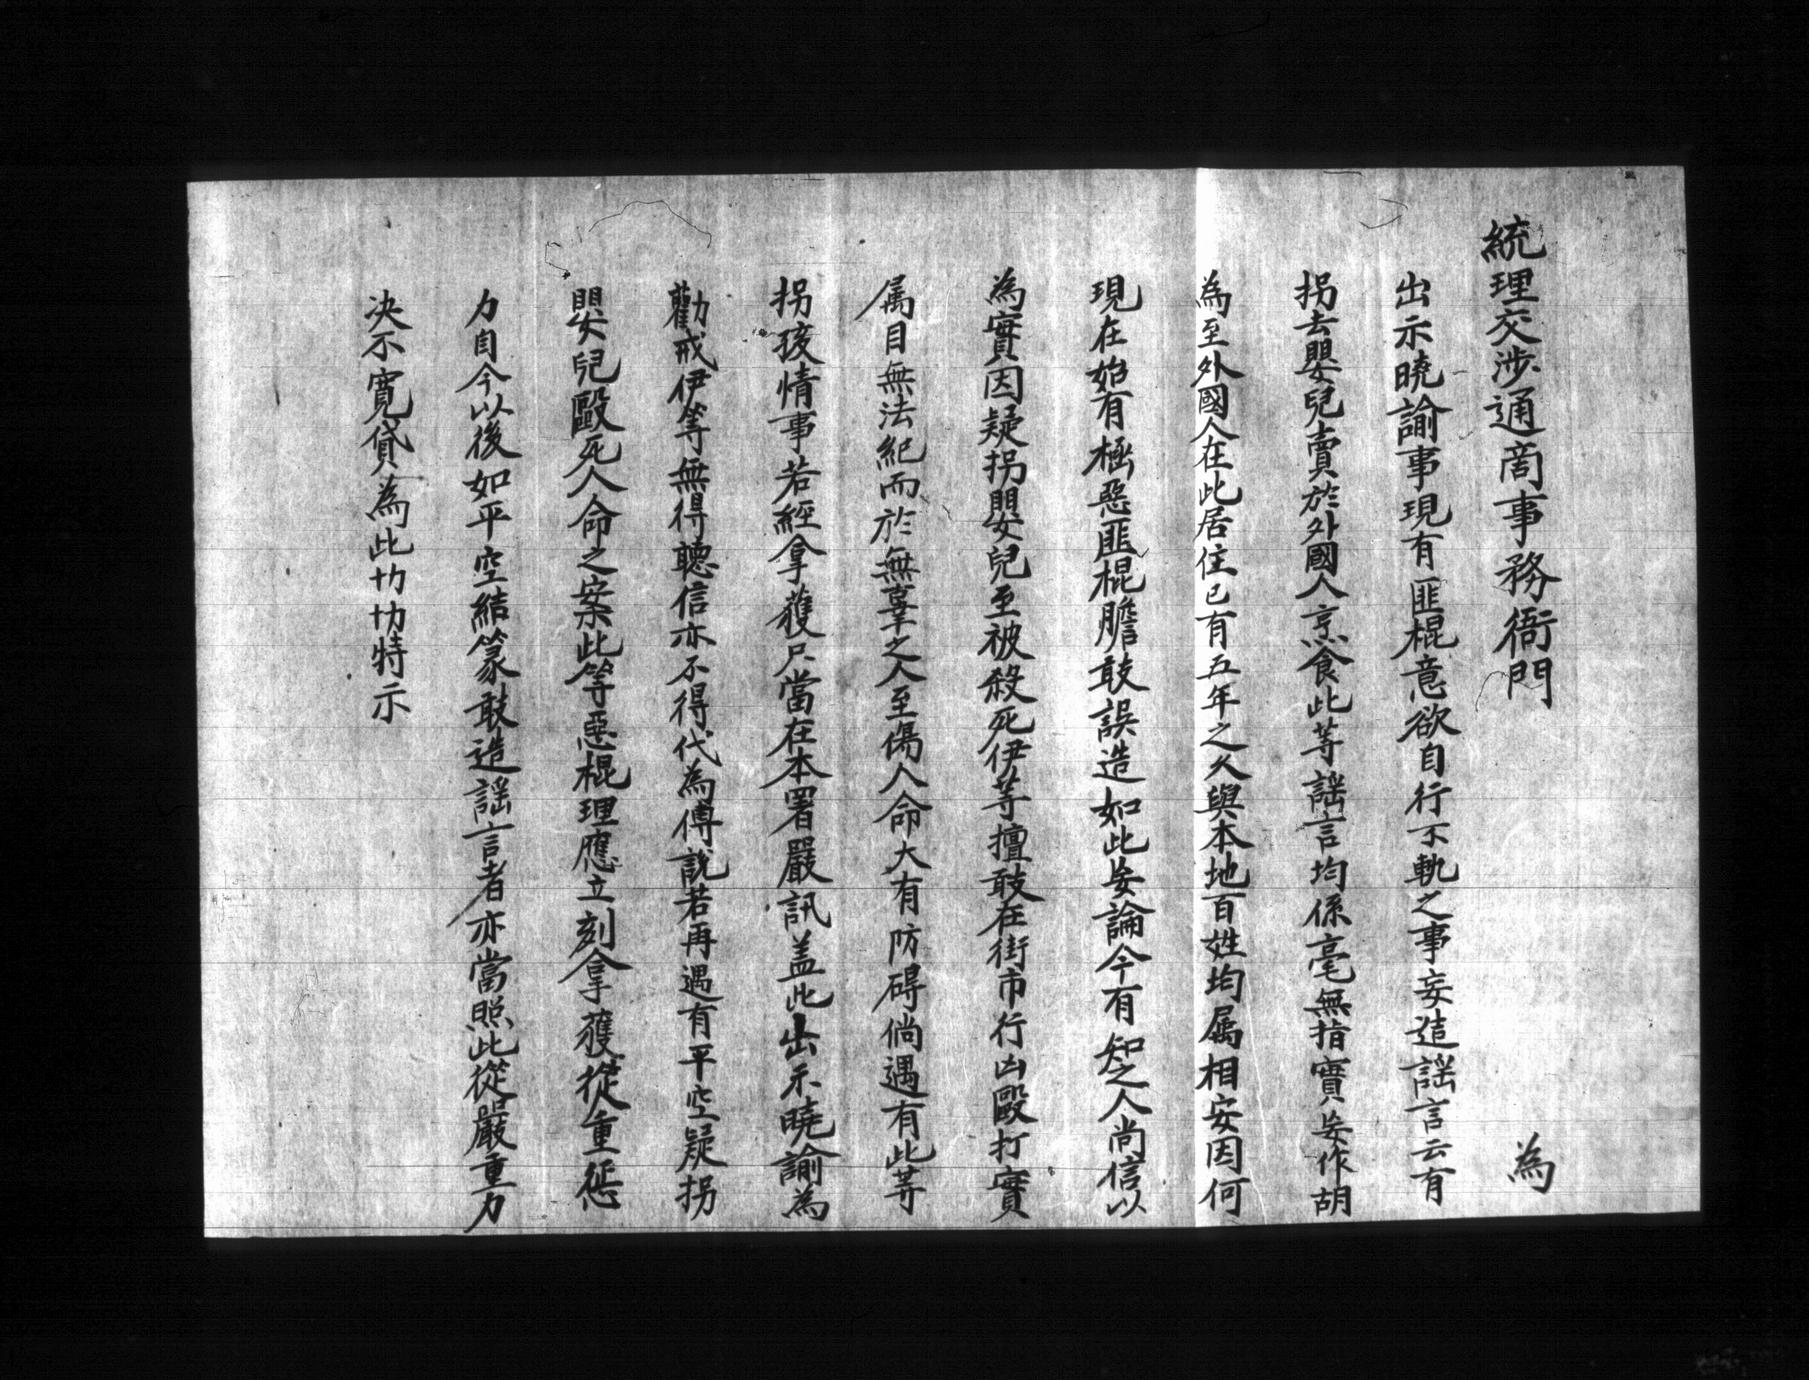 統理交涉通商事務衙門 為
出示曉諭事現有匪棍意欲自行不軌之事妄造謠言云有
拐去嬰兒賣於外國人烹食此等謠言均係毫無指實妄作胡
為至外國人在此居住已有五年之久與本地百姓均属相安因何
現在始有極惡匪棍膽敢誤造如此妄論今有知之人尚信以
為實因疑拐嬰兒至被殺死伊等擅敢在街市行凶毆打實
属目無法紀而於無辜之人至傷人命大有防碍倘遇有此等
拐孩情事若經拿獲只當在本署嚴訊盖此出示曉諭為
勸戒伊等無得聽信亦不得代為傳說若再遇有平空疑拐
嬰兒毆死人命之案此等惡棍理應立刻拿獲從重惩
力自今以後如平空結篆敢造謠言者亦當照此從嚴重力
决不寬貸為此切切特示